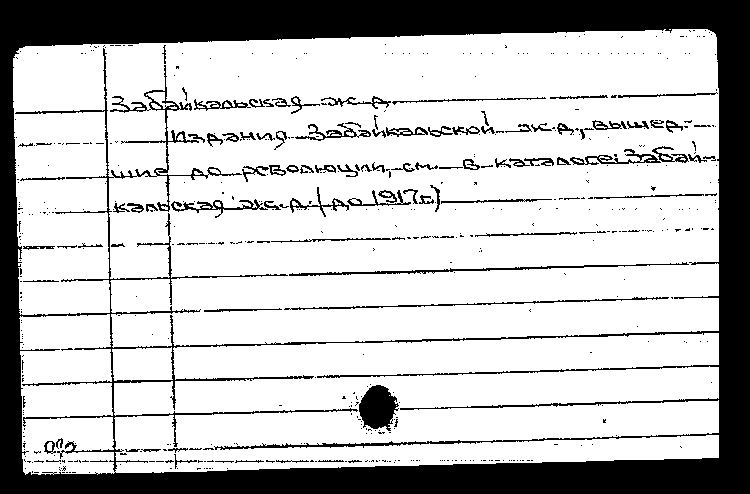 Забайкальская ж.д.
Издания Забайкальской ж.д., вышед-
шие до революции, см. в каталоге: Забай-
кальская ж.д. (до 1917г.)